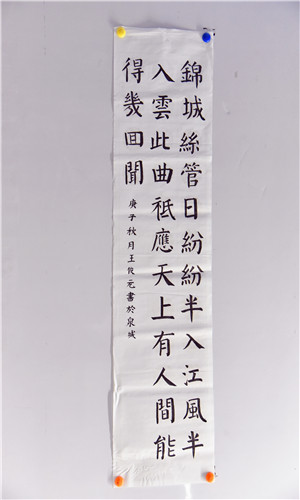 錦城絲管日紛紛半入江風半
入雲此曲祗應天上有人間能
得幾回聞
庚子秋月王俊元書於泉城